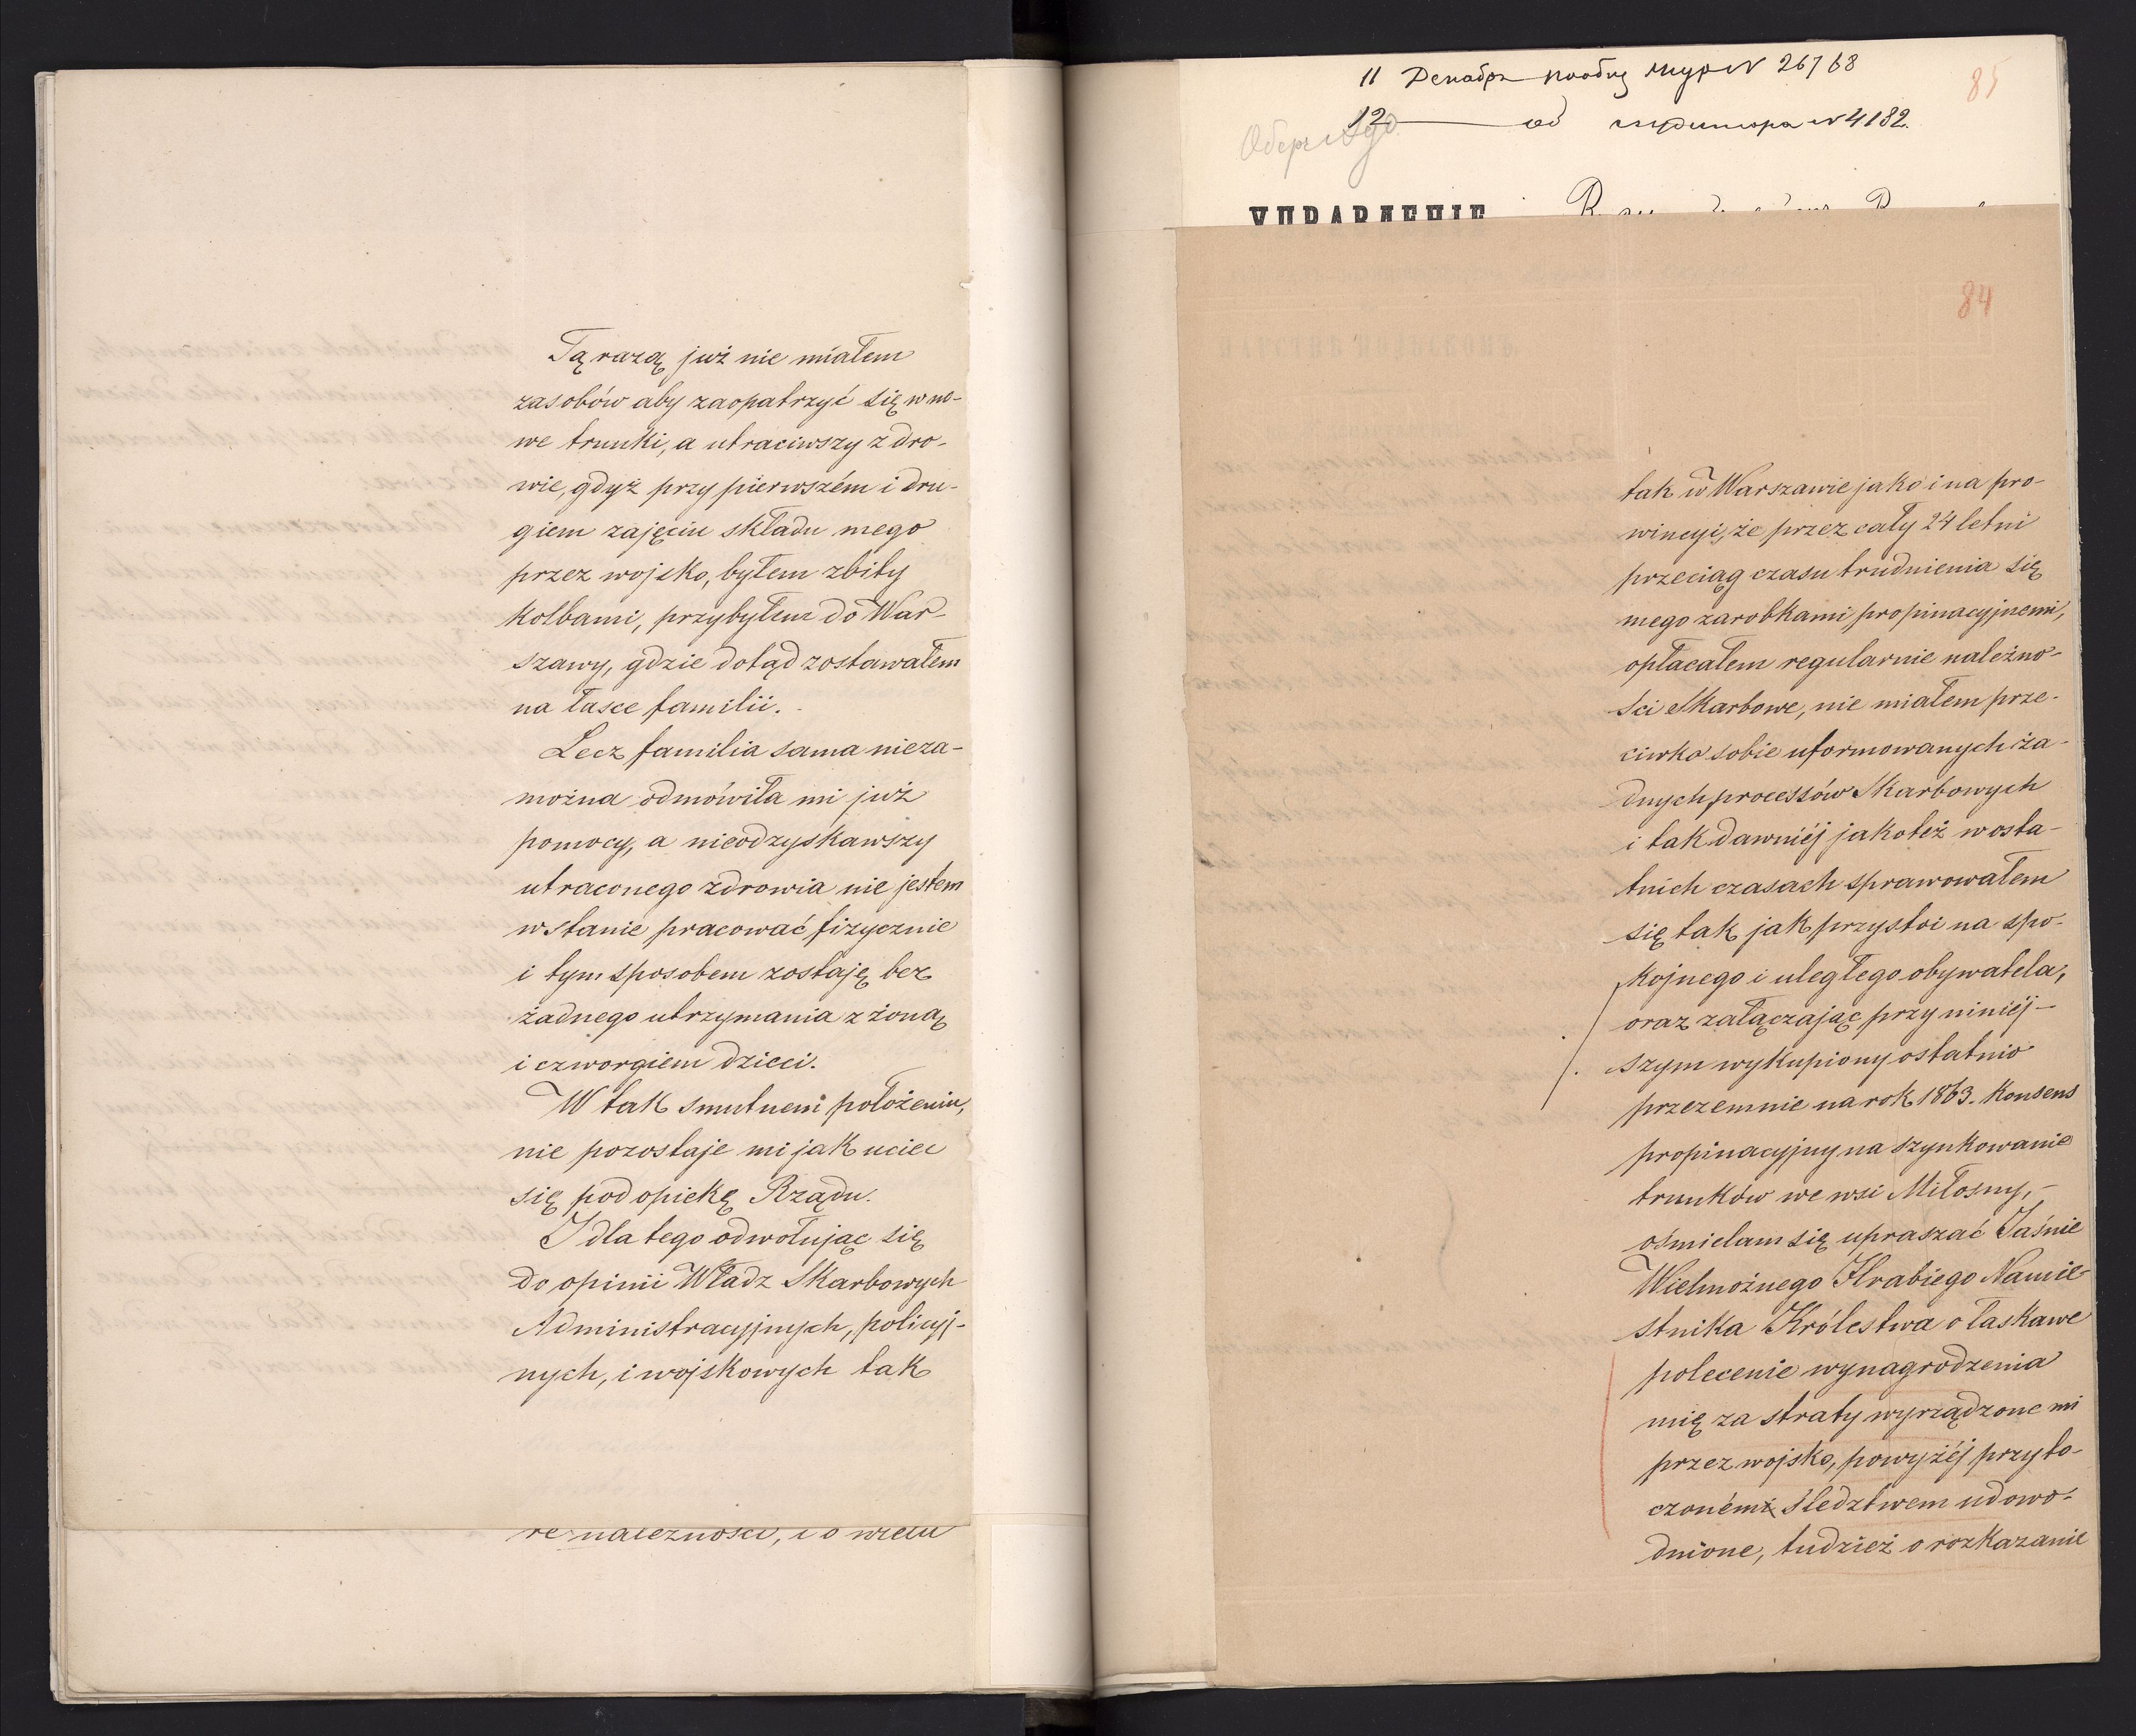 Tą razą już nie miałem
zasobów aby zaopatrzyć się w no-
we trunki, a utraciwszy zdro-
wie, gdyż przy pierwszém i dru-
giem zajęciu składu mego
przez wojsko, byłem zbity
kolbami, przybyłem do War-
szawy, gdzie dotąd zostawałem
na łasce familii.
Lecz familia sama nieza-
można odmówiła mi już
pomocy, a nieodzyskawszy
utraconego zdrowia nie jestem
w stanie pracować fizycznie
i tym sposobem zostaję bez
żadnego utrzymania z żoną
i czworgiem dzieci.
W tak smutnem położeniu,
nie pozostaje mi jak uciec
się pod opiekę Rządu.
I dla tego odwołując się
do opinii Władz Skarbowych
Administracyjnych, policyj-
nych, i wojskowych tak
re należności, i o wielu
11 Декабря 26768
85
12 4182.
УПРАВЛЕНІЕ
84
tak w Warszawie jako i na pro-
wincyi, że przez cały 24 letni
przeciąg czasu trudnienia się
mego zarobkami propinacyjnemi,
opłacałem regularnie należno-
ści Skarbowe, nie miałem prze-
ciwko sobie uformowanych ża-
dnych processów Skarbowych
i tak dawniéj jakoteż w osta-
tnich czasach sprawowałem
się tak jak przystoi na spo-
kojnego i uległego obywatela,
oraz załączając przy niniéj-
szym wykupiony ostatnio
przezemnie na rok 1863. Konsens
propinacyjny na szynkowanie
trunków we wsi Miłosny,-
ośmielam się upraszać Jaśnie
Wielmożnego Hrabiego Namie-
stnika Królestwa o łaskawe
polecenie wynagrodzenia
mię za straty wyrządzone mi
przez wojsko, powyżéj przyto-
czoném śledztwem udowo-
dnione, tudzież o rozkazanie